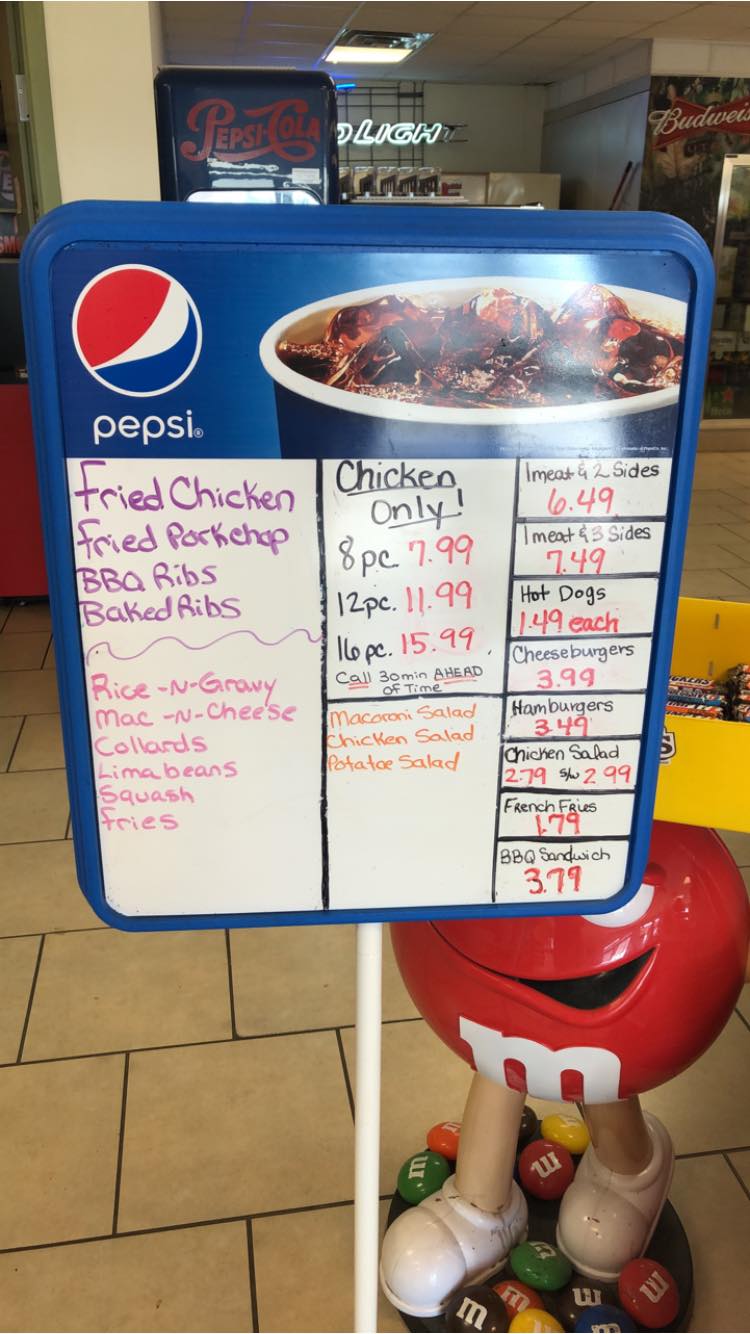 PEPSI-COLA
D LIGHT
Budweis
pepsi
Fried Chicken
Fried Porkchop
BBQ Ribs
Baked Ribs
Rice -N-Gravy
Mac -N-Cheese
Collards
Lima beans
Squash
Fries
Chicken
Only!
8 pc. 7.99
12 pc. 11.99
16 pc. 15.99
Call 30 min AHEAD
OF Time
Macaroni Salad
Chicken Salad
Potatoe Salad
1 meat & 2 Sides
6.49
1 meat & 3 Sides
7.49
Hot Dogs
1.49 each
Cheeseburgers
3.99
Hamburgers
3.49
Chicken Salad
2.79 s/w 2.99
French Fries
1.79
BBQ Sandwich
3.79
m
m
m
m
m
m
m
m